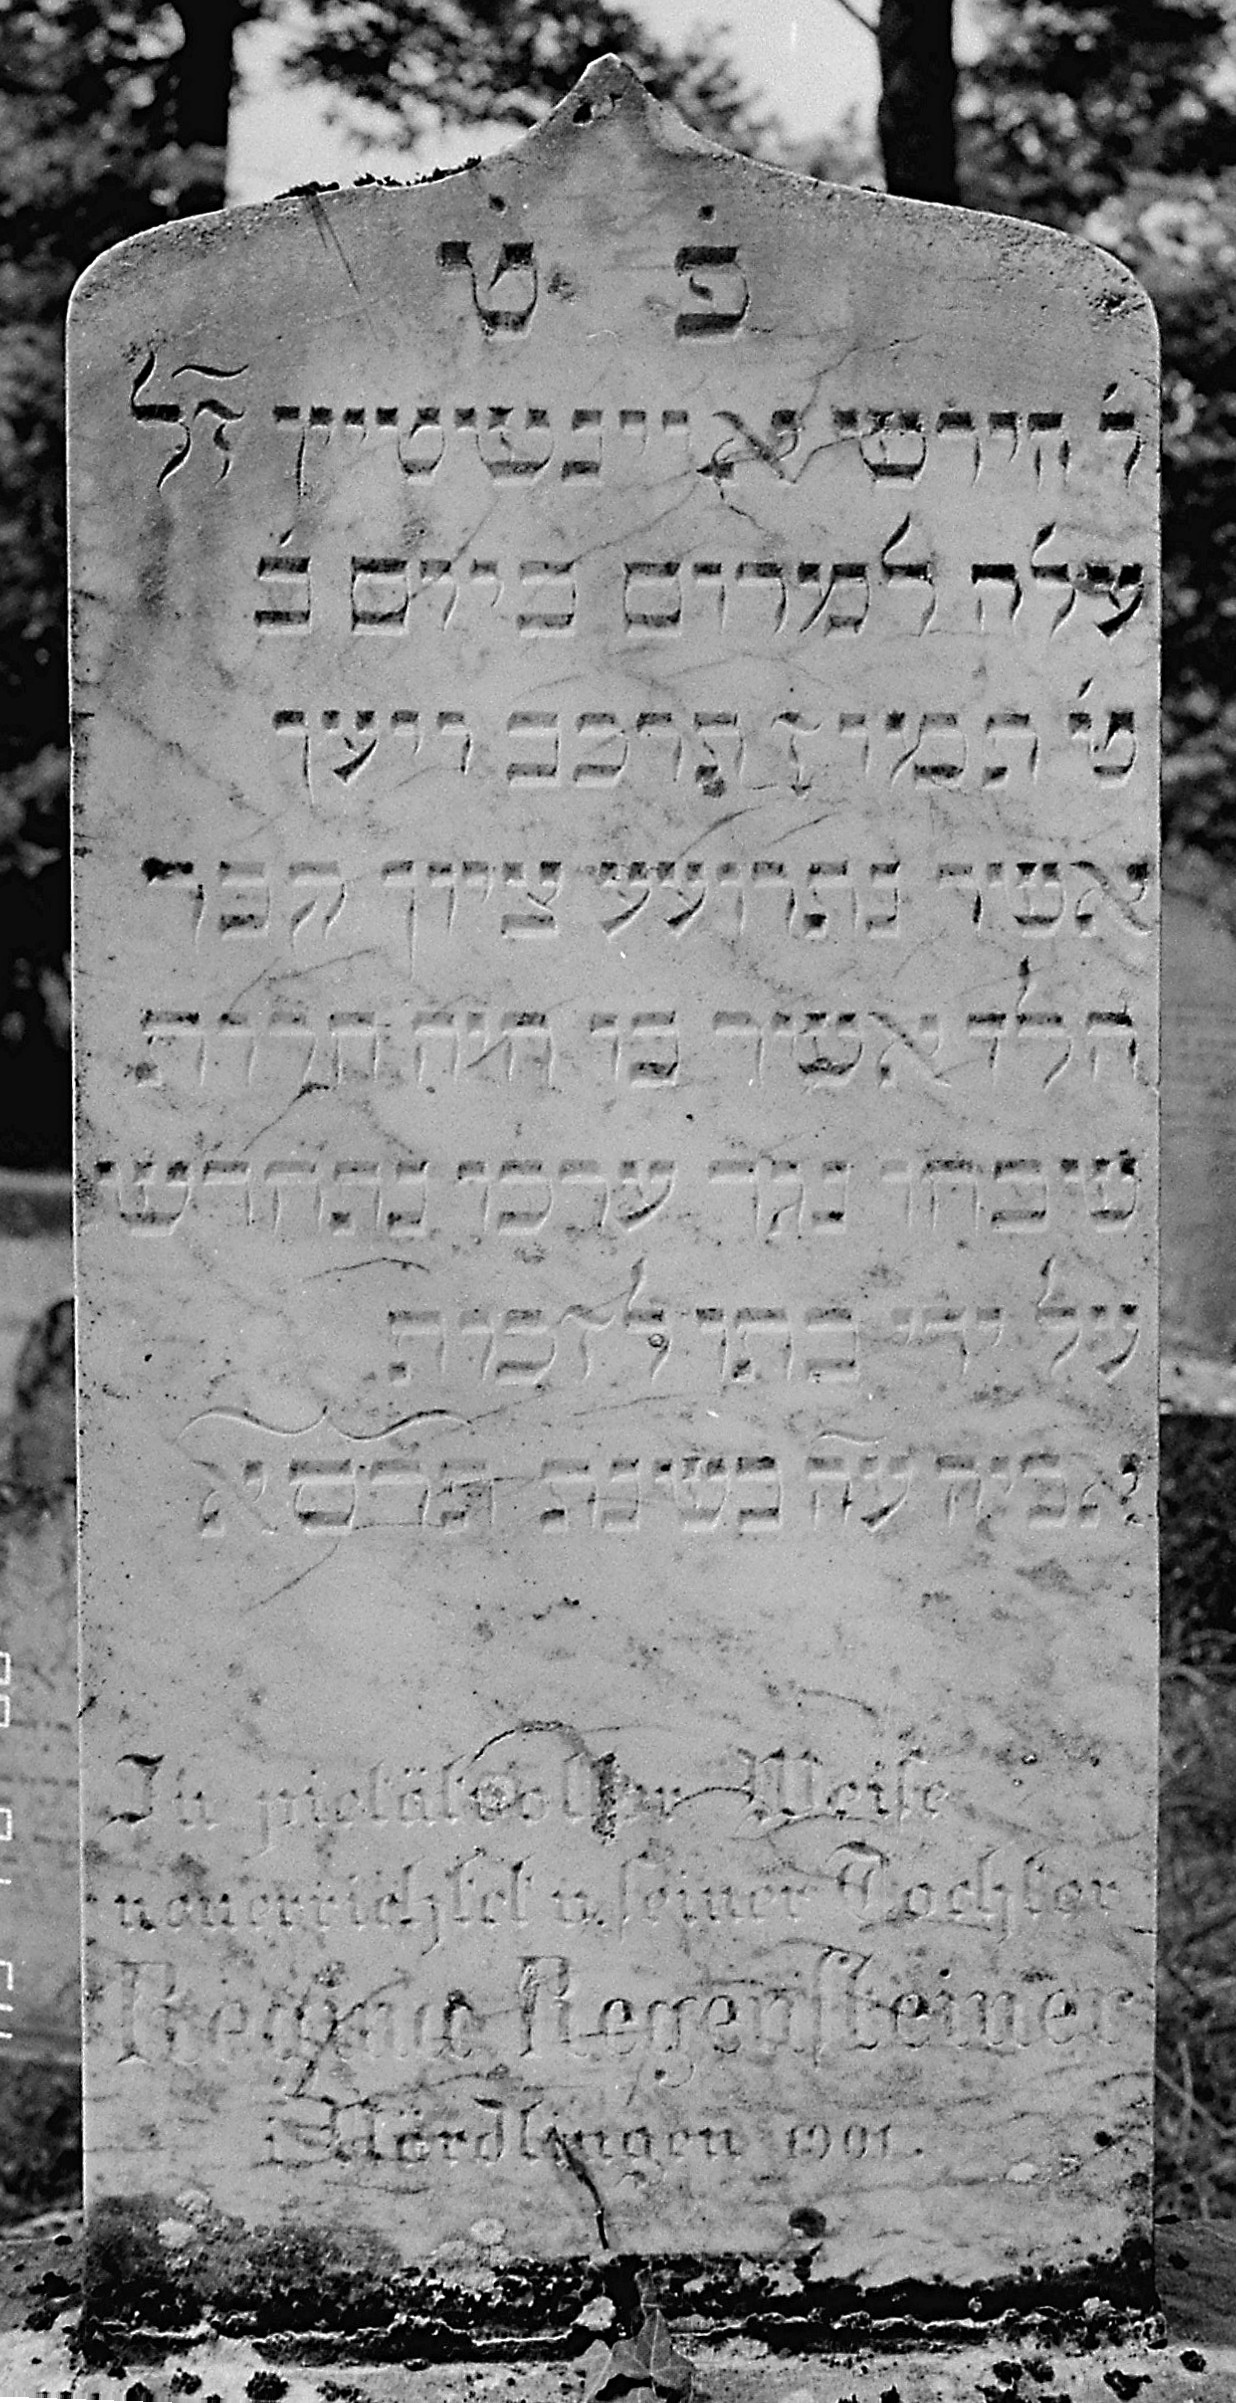 פ ט
ר' הירש איינשטיין ז"ל
עלה למרום ביום ב'
ט' תמוז תרכב ויען
אשר נתרועע ציון קבר
הלז אשר בו היה חרות
שיבחו נגד ערכו נתחדש
על ידי בתו לזכות
אביה עה בשנת תרסא
In pietätvoller Weise
neuerrichtet v. seiner Tochter
Regine Regensteiner
i. Nördlingen 1901.